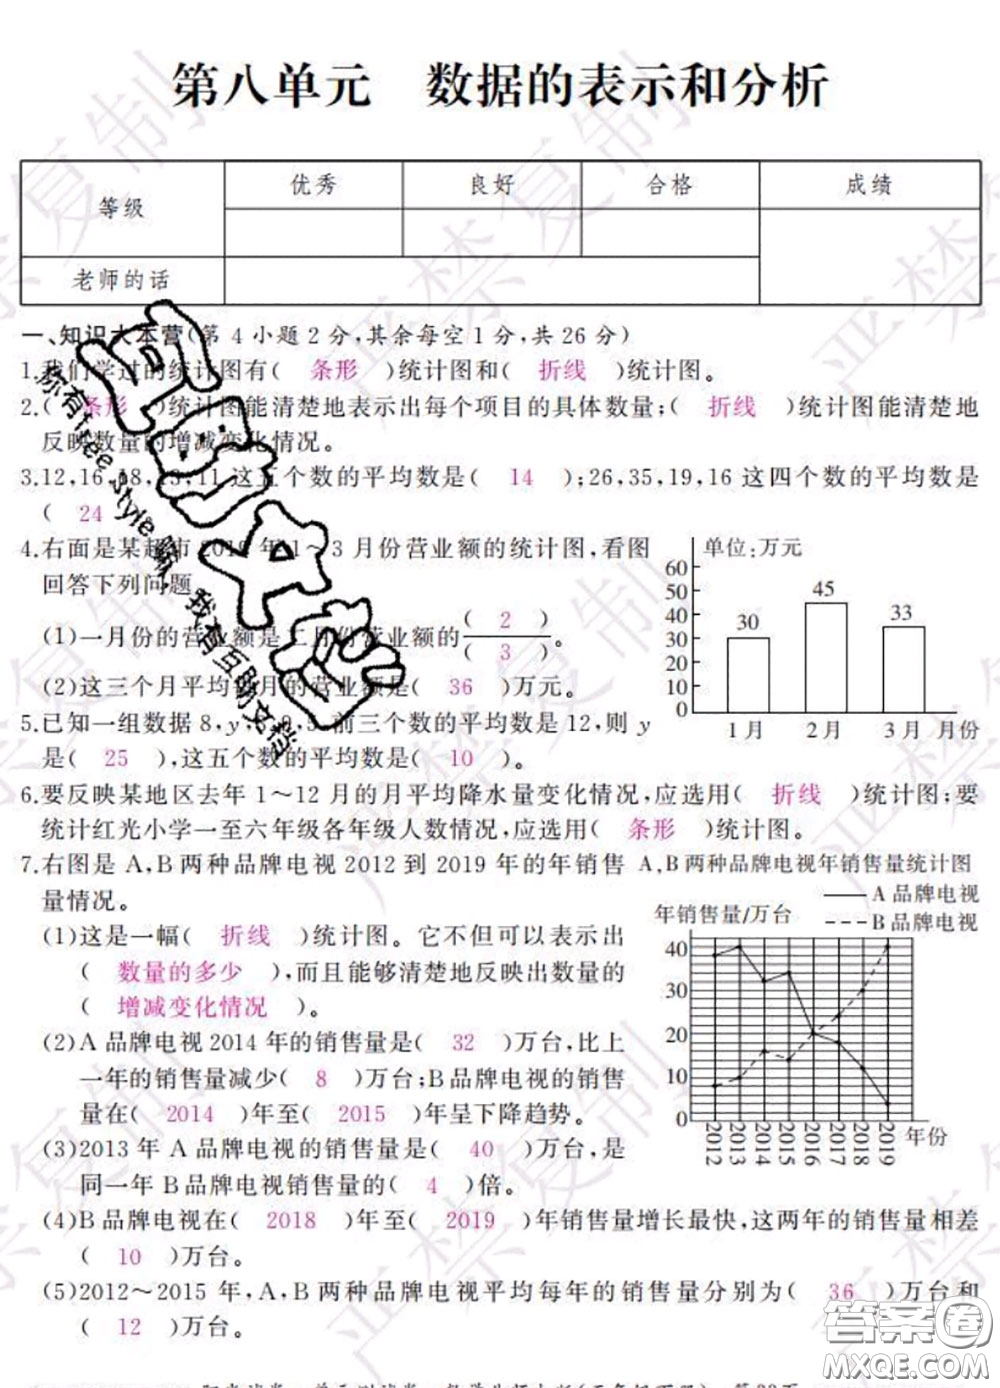 第八单元 数据的表示和分析
等级 优秀 良好 合格 成绩
老师的话
一、知识大本营(第4小题2分,其余每空1分,共26分)
1.我们学过的统计图有( 条形 )统计图和( 折线 )统计图。
2.( 条形 )统计图能清楚地表示出每个项目的具体数量;( 折线 )统计图能清楚地
反映数量的增减变化情况。
3.12,16,18,13,11这五个数的平均数是( 14 );26,35,19,16这四个数的平均数是
( 24
4.右面是某超市2019年1~3月份营业额的统计图,看图
回答下列问题
(1)一月份的营业额是二月份营业额的( 2 )/( 3 )。
(2)这三个月平均每月的营业额是( 36 )万元。
单位:万元
60
50
40
30
20
10
0
30
45
33
1月 2月 3月 月份
5.已知一组数据8,y, 9,5,前三个数的平均数是12,则y
是( 25 ),这五个数的平均数是( 10 )。
6.要反映某地区去年1~12月的月平均降水量变化情况,应选用( 折线 )统计图;要
统计红光小学一至六年级各年级人数情况,应选用( 条形 )统计图。
7.右图是A,B两种品牌电视2012到2019年的年销售
量情况。
(1)这是一幅( 折线 )统计图。它不但可以表示出
( 数量的多少 ),而且能够清楚地反映出数量的
( 增减变化情况 )。
(2)A品牌电视2014年的销售量是( 32 )万台,比上
一年的销售量减少( 8 )万台;B品牌电视的销售
量在( 2014 )年至( 2015 )年呈下降趋势。
(3)2013年A品牌电视的销售量是( 40 )万台,是
同一年B品牌电视销售量的( 4 )倍。
A,B两种品牌电视年销售量统计图
A品牌电视
B品牌电视
年销售量/万台
40
30
20
10
0
2012 2013 2014 2015 2016 2017 2018 2019 年份
(4)B品牌电视在( 2018 )年至( 2019 )年销售量增长最快,这两年的销售量相差
( 10 )万台。
(5)2012~2015年,A,B两种品牌电视平均每年的销售量分别为( 36 )万台和
( 12 )万台。
答案圈
MXQE.COM
严禁复制